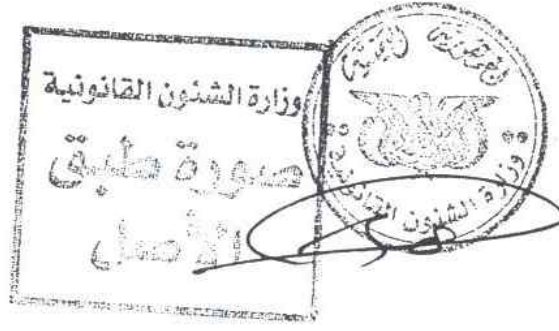 وزارة الشئون القانونية
صورة طبق
الأصل
الجمهورية اليمنية
وزارة الشئون القانونية